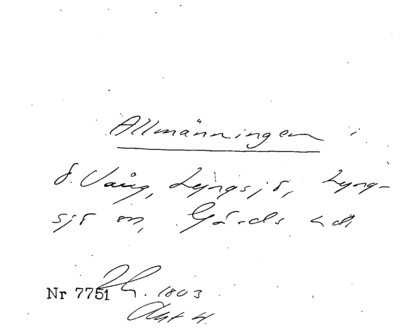 Allmänningen i
Ö. Vång, Lyngsjö, Lyng-
sjö sn, Gärds hd.
Nr 7751
1803
Akt 4.